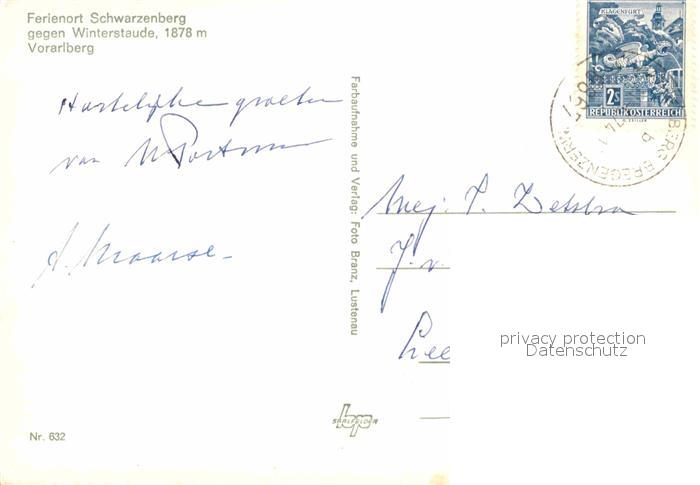 Ferienort Schwarzenberg
gegen Winterstaude, 1878 m
Vorarlberg
Hartelijke groeten
van
A. Maarse
Farbaufnahme und Verlag: Foto Branz, Lustenau
KLAGENFURT
2S
REPUBLIK ÖSTERREICH
BERG BREGENZERW.
Mej.
privacy protection
Datenschutz
SAALFELDEN
Nr. 632